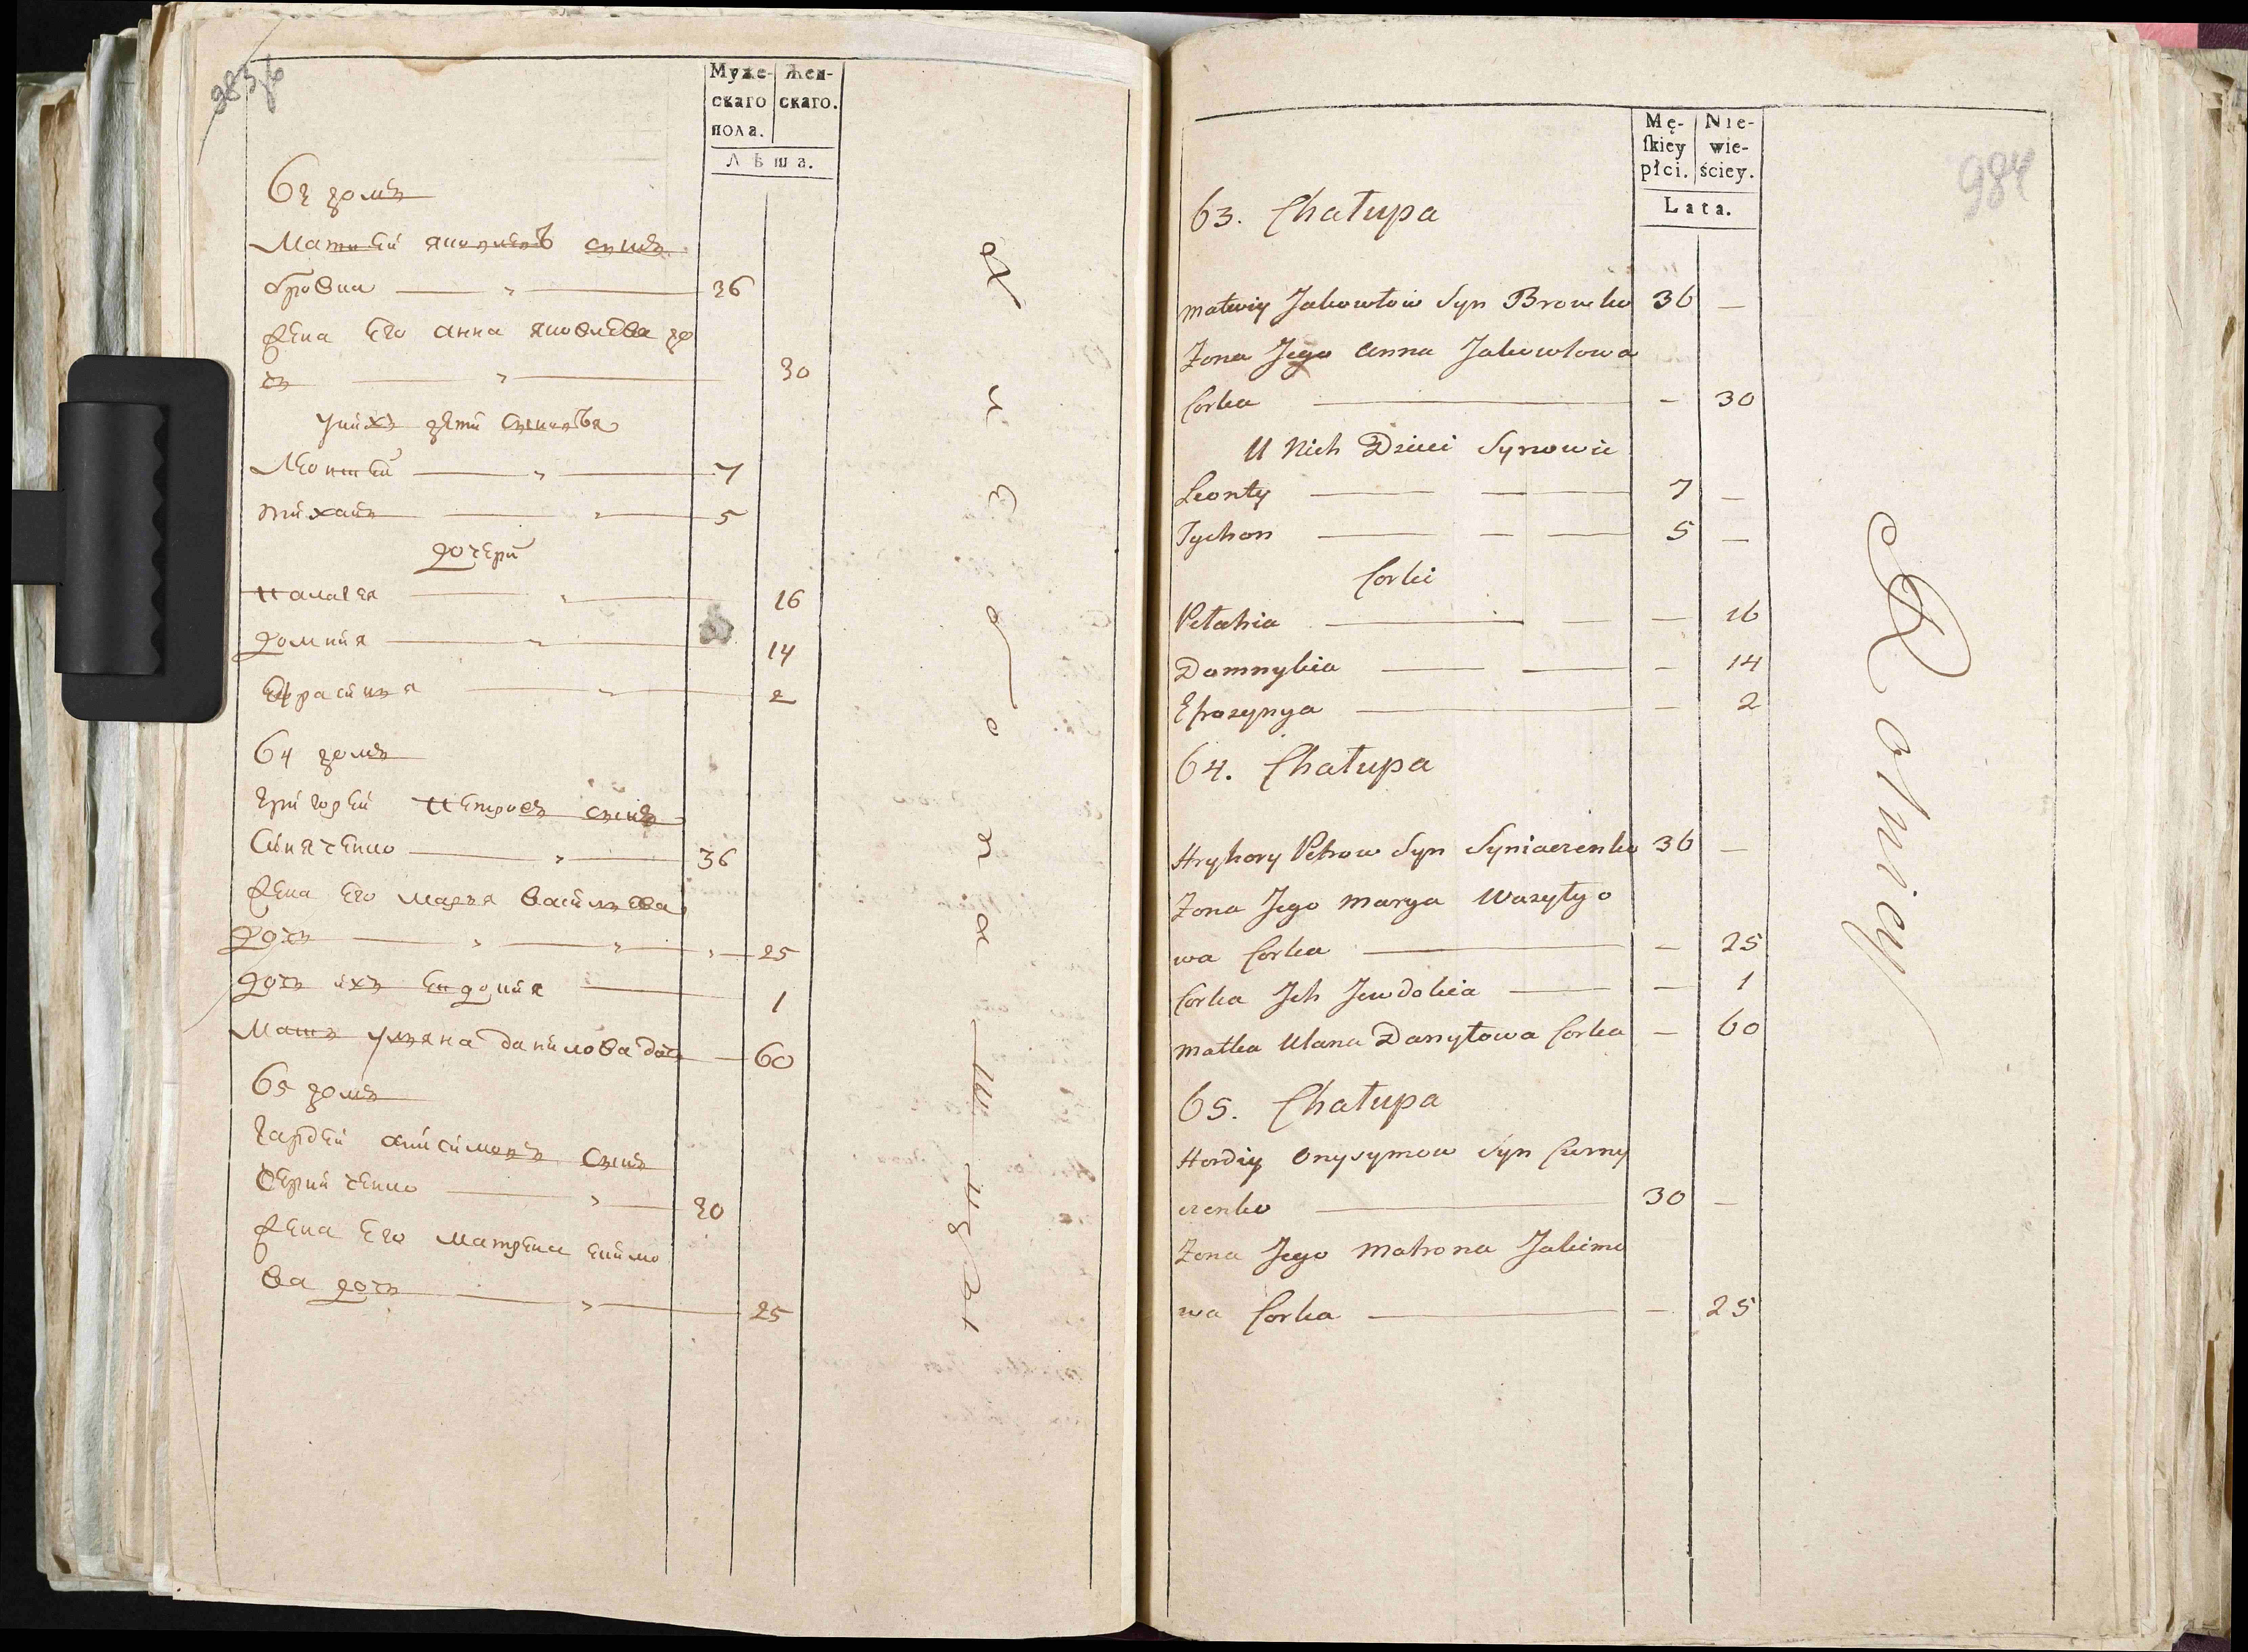 983 об
Муже- Жен-
скаго скаго.
пола.
Лѣта.
63 домъ
Матвей яковлевъ сынъ
бровко 36
Жена Его анна яковлева до
чъ 30
у них дети сыновья
Леонтей 7
тихонъ 5
дочери
палагея 16
домния 14
Ефросинья 2
64 домъ
григорей петровъ сынъ
Синяченко 36
Жена Его марья васильева
дочь 25
дочь ихъ Евдокия 1
Мать ульяна данилова дочь 60
65 домъ
гардей анисимовъ сынъ
черниченко 30
Жена Его матрена Екимо
ва дочь 25
984
Mę- Nie-
skiey wie-
płci. ściey.
Lata.
63. Chałupa
Matwiy Jakowłow Syn Browko 36 —
Zona Jego Anna Jakowłowa
Corka — 30
U Nich Dzieci Synowie
Leonty 7 —
Tychon 5 —
Corki
Pełahia — 16
Domnykia — 14
Efrozynya — 2
64. Chałupa
Hryhory Petrow Syn Syniaczenko 36 —
Zona Jego Marya Wasyłyo
wa Corka — 25
Corka Jch Jewdokia — 1
Matka Ulana Danyłowa Corka — 60
65. Chałupa
Hordiy Onysymow Syn Czerny
czenko 30 —
Zona Jego Matrona Jakimo
wa Corka — 25